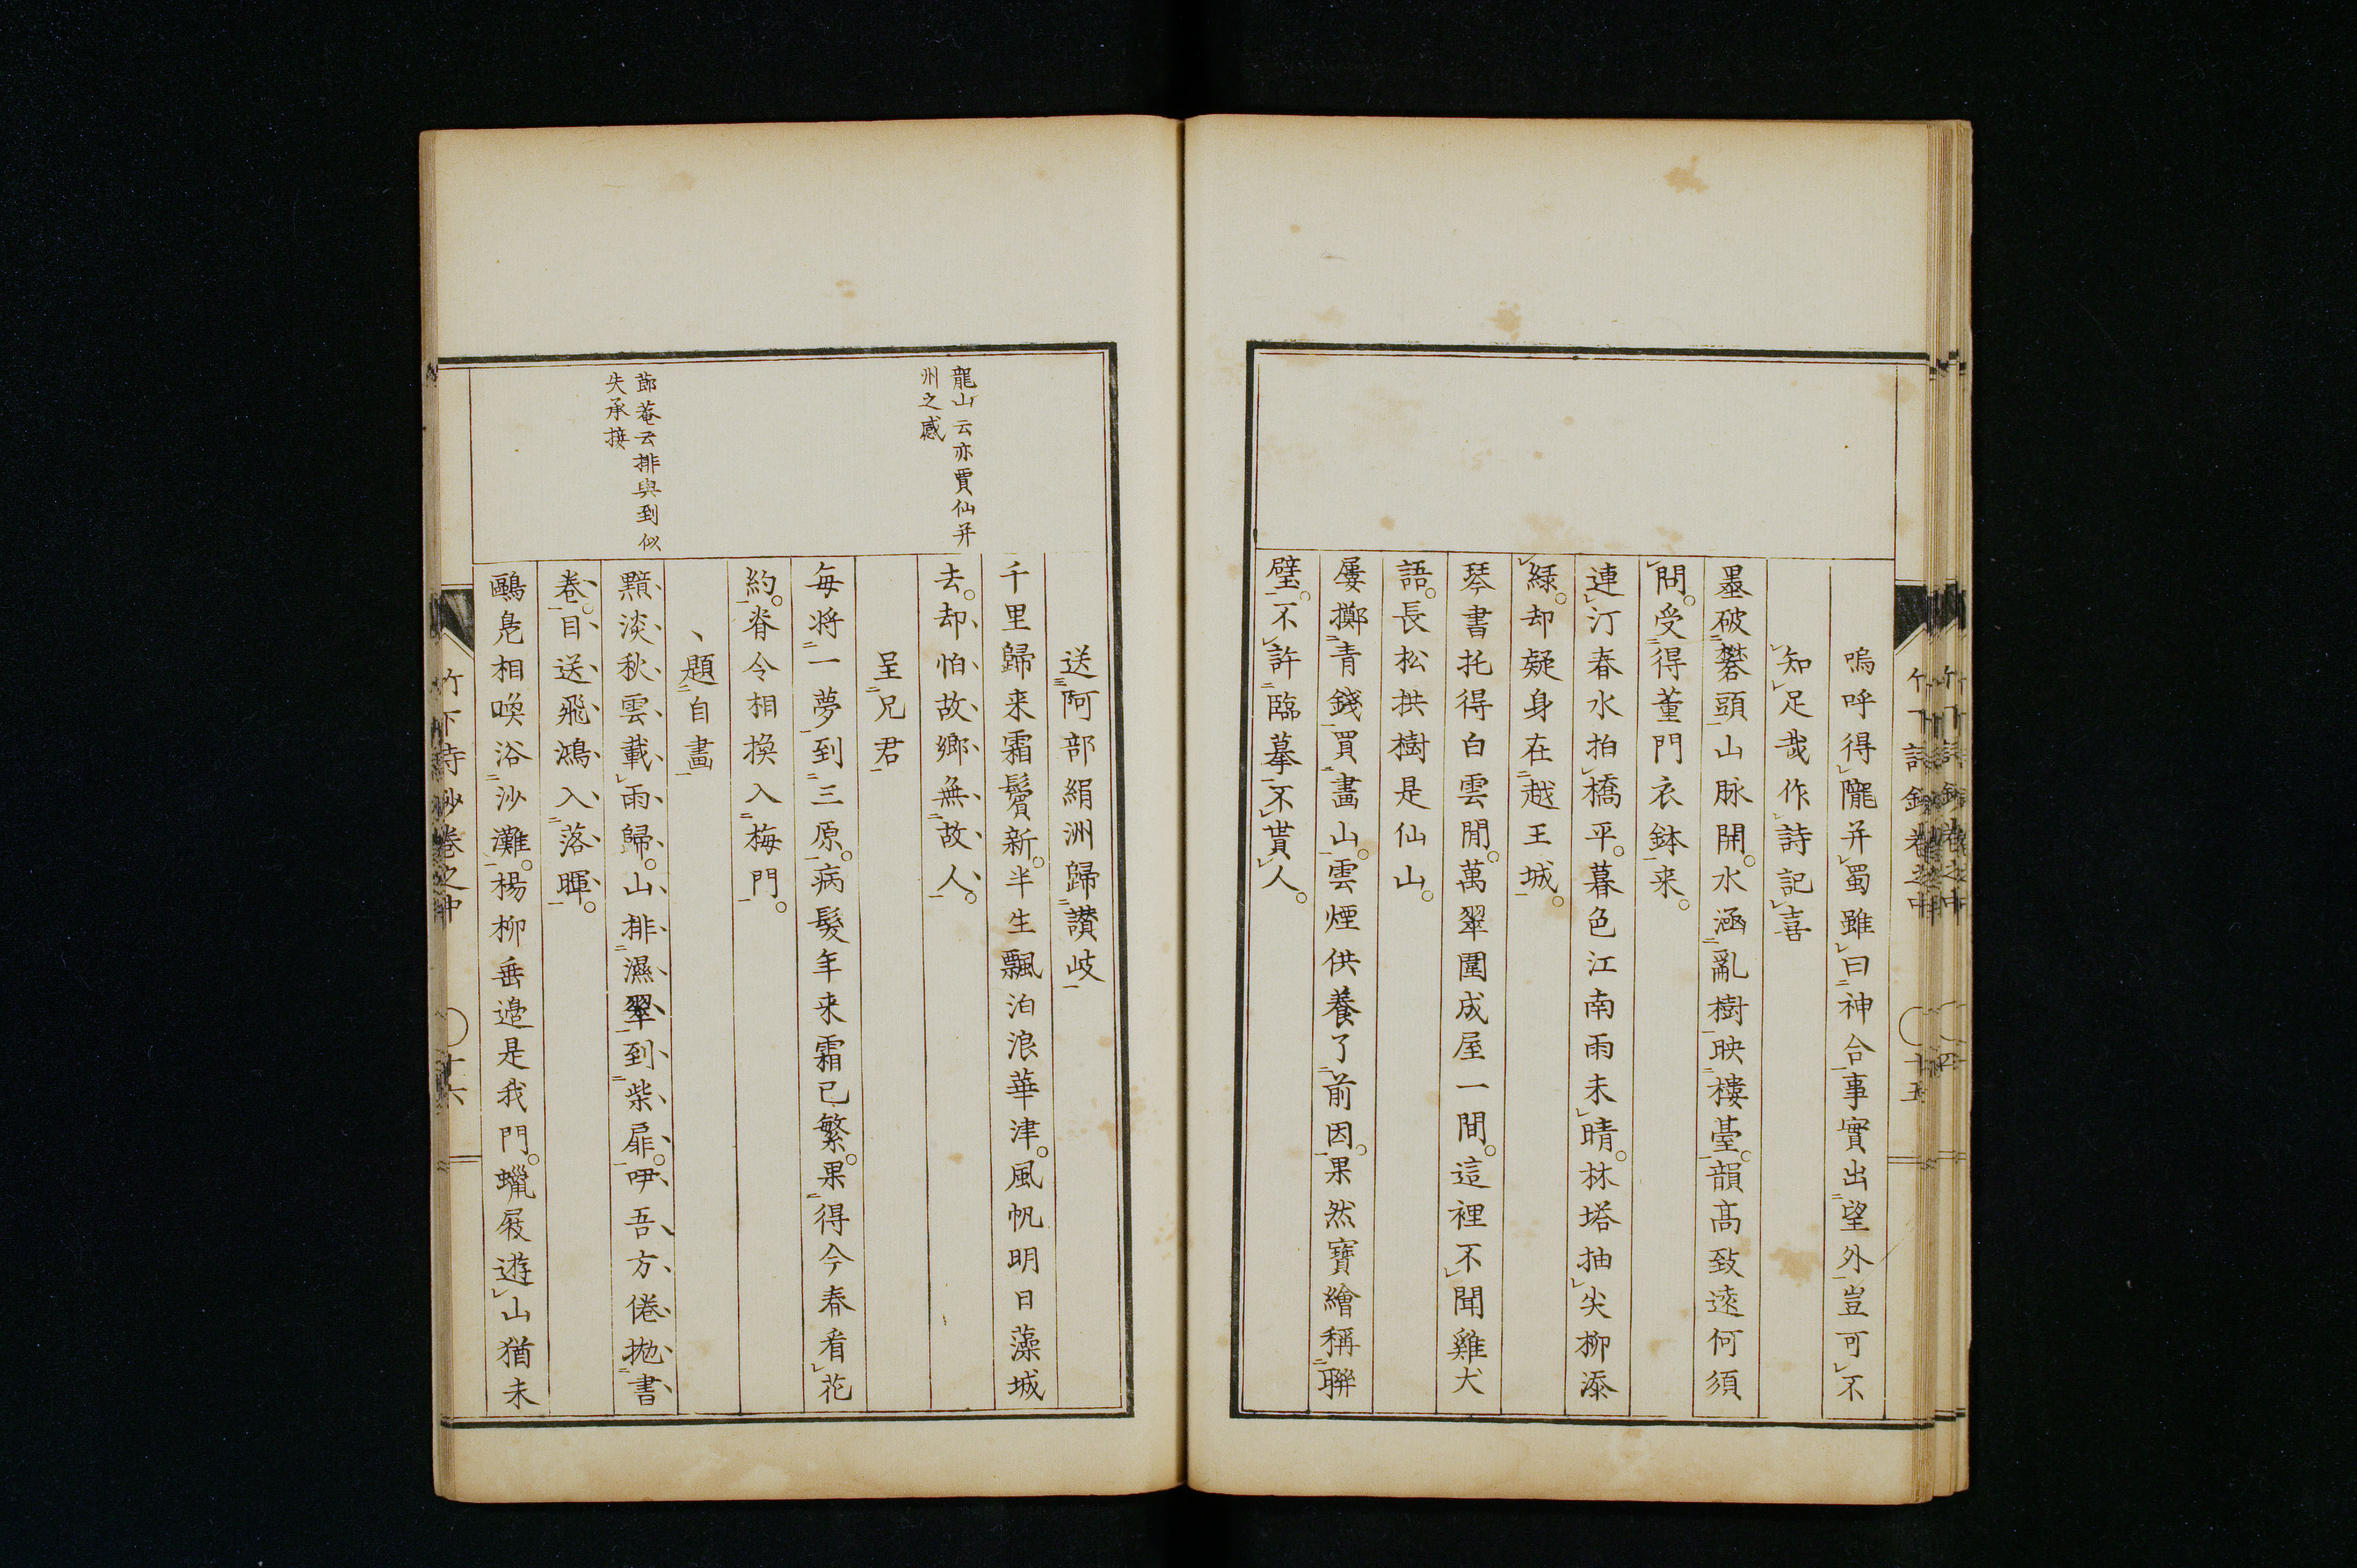 嗚呼得隴并蜀雖曰神合事實出望外豈可不
知足哉作詩記喜
墨破礬頭山脉開。水涵亂樹映樓臺。韻高致遠何須
問。受得董門衣鉢来。
連汀春水拍橋平。暮色江南雨未晴。林塔抽尖柳添
綠。却疑身在越王城。
琴書托得白雲閒。萬翠圍成屋一間。這裡不聞雞犬
語。長松拱樹是仙山。
屢擲青錢買畫山。雲煙供養了前因。果然寶繪稱聯
璧。不許臨摹不貰人。
竹下詩鈔卷之中 〇十五
送阿部絹洲歸讚岐
千里歸来霜鬢新。半生飄泊浪華津。風帆明日藻城
去。却怕故鄉無故人。
龍山云亦賈仙并
州之感
呈兄君
每將一夢到三原。病髮年来霜已繁。果得今春看花
約。脊令相換入梅門。
題自畫
黯淡秋雲載雨歸。山排濕翠到柴扉。咿吾方倦抛書
卷。目送飛鴻入落暉。
節菴云排與到似
失承接
鷗鳧相喚浴沙灘。楊柳垂邊是我門。蠟屐遊山猶未
竹下詩鈔卷之中 〇十六